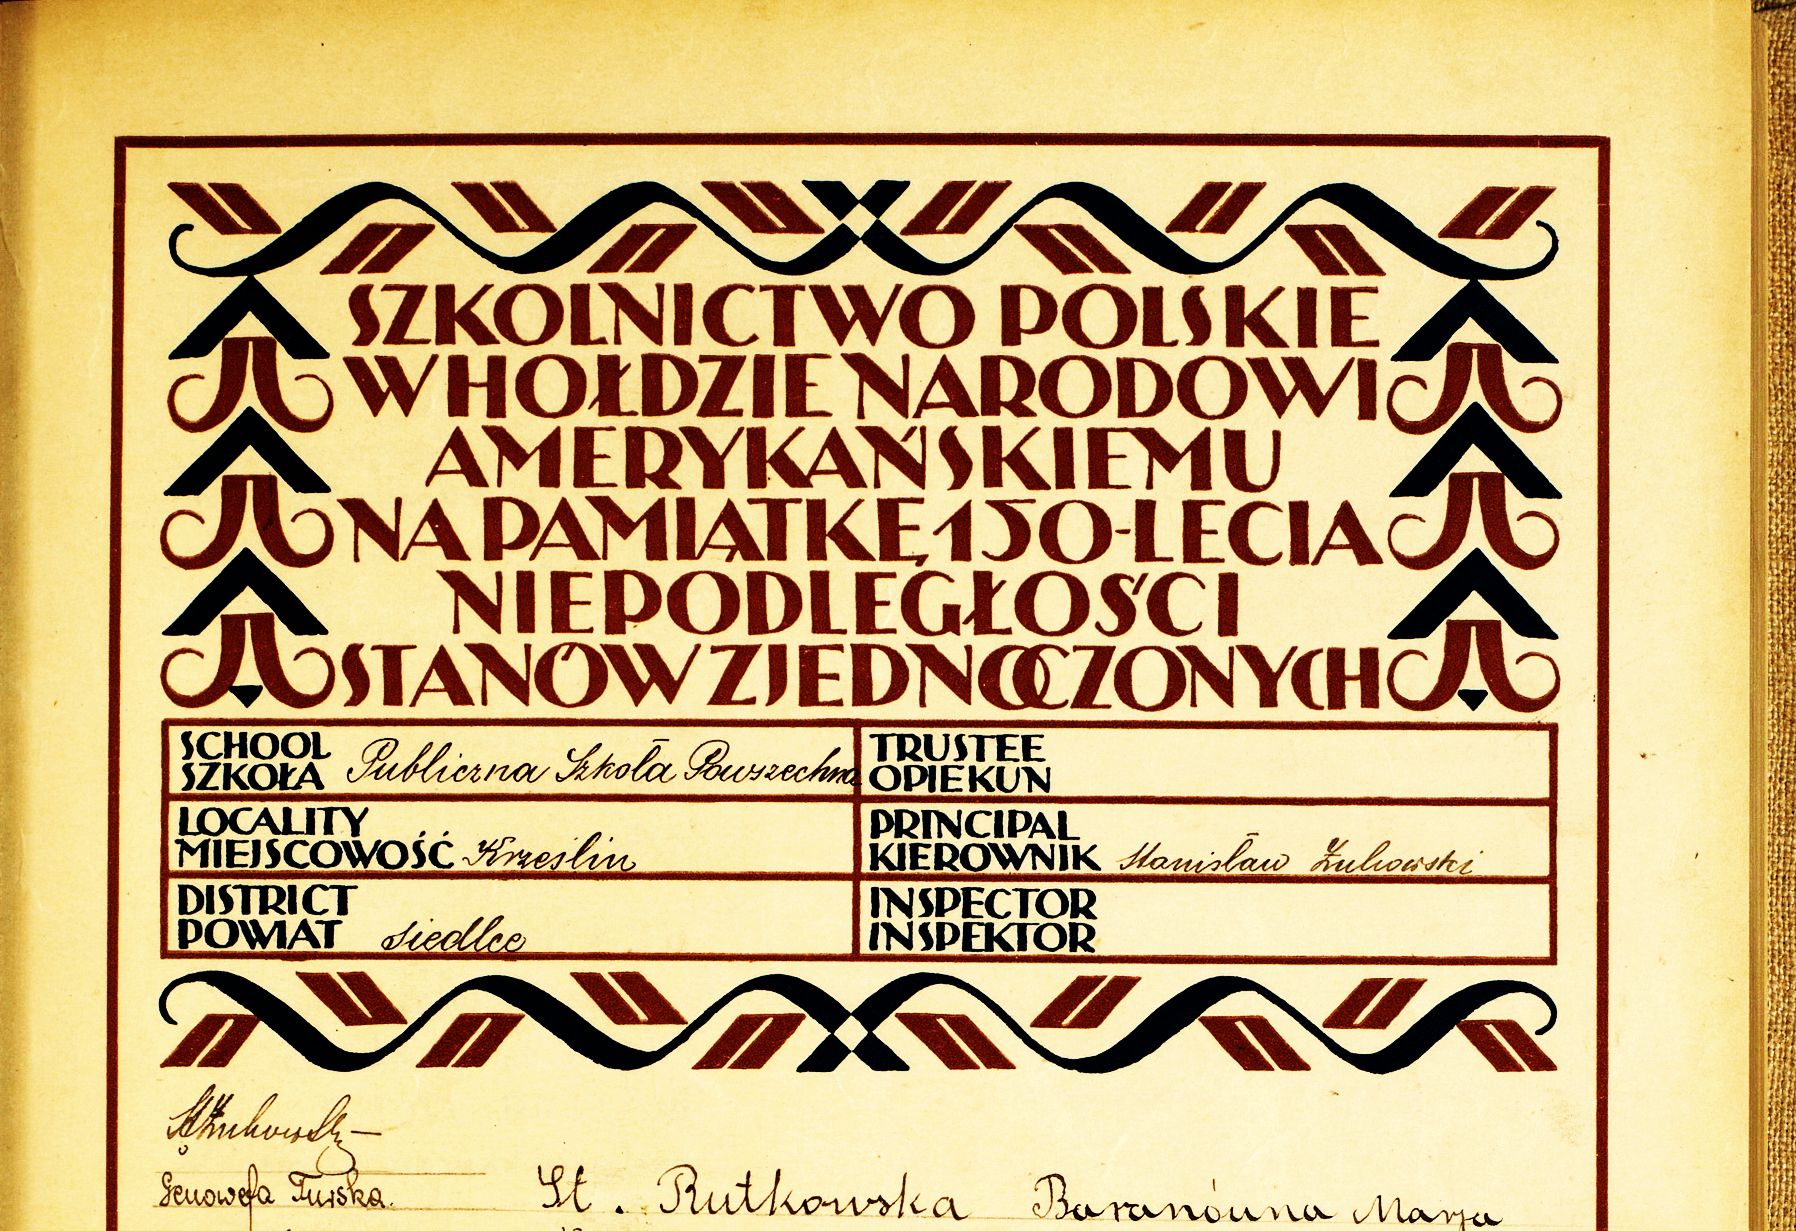 SZKOLNICTWO POLSKIE
W HOŁDZIE NARODOWI
AMERYKAŃSKIEMU
NA PAMIĄTKĘ 150-LECIA
NIEPODLEGŁOŚCI
STANÓW ZJEDNOCZONYCH
SCHOOL
SZKOŁA Publiczna Szkoła Powszechna
TRUSTEE
OPIEKUN
LOCALITY
MIEJSCOWOŚĆ Krześlin
PRINCIPAL
KIEROWNIK Stanisław Żukowski
DISTRICT
POWIAT Siedlce
INSPECTOR
INSPEKTOR
StŻukowski
Genowefa Turska. St. Rutkowska Baranówna Marja